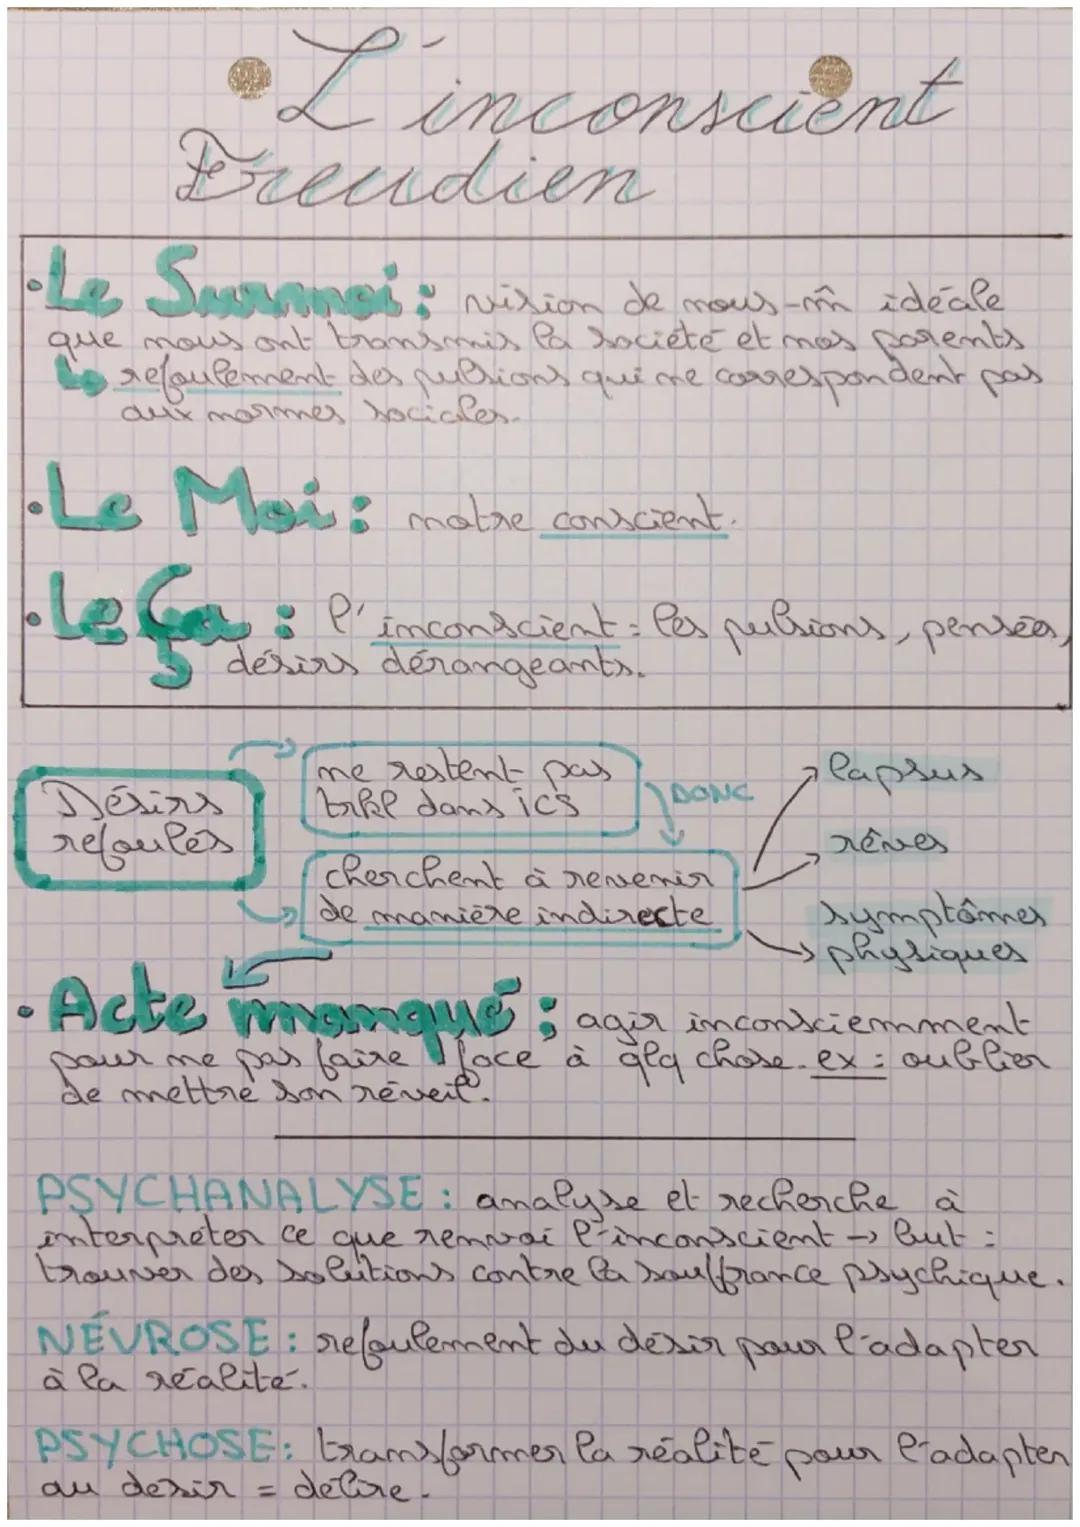 L'inconscient
Freudien
• Le Surmoi : vision de nous-m̂ idéale
que nous ont transmis la société et nos parents
↳ refoulement des pulsions qui ne correspondent pas
aux normes sociales.
• Le Moi : notre conscient.
• Le Ça : l'inconscient = les pulsions, pensées,
désirs dérangeants.
Désirs
refoulés
ne restent pas
trkl dans ics
DONC
cherchent à revenir
de manière indirecte
lapsus
rêves
symptômes
physiques
• Acte manqué : agir inconsciemment
pour ne pas faire face à qlq chose. ex : oublier
de mettre son réveil.
PSYCHANALYSE : analyse et recherche à
interpréter ce que renvoi l'inconscient → but :
trouver des solutions contre la souffrance psychique.
NÉVROSE : refoulement du désir pour l'adapter
à la réalité.
PSYCHOSE : transformer la réalité pour l'adapter
au desir = délire.